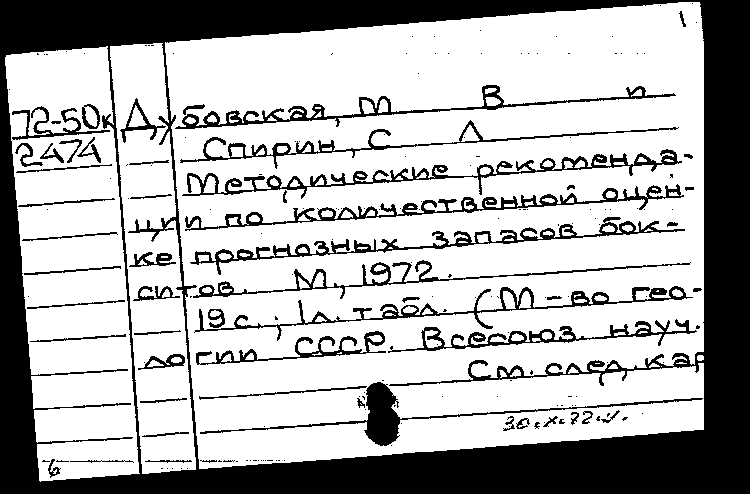 1
72-50к Дубовская, М В п
2474 Спирин, С Л
Методические рекоменда-
ции по количественной оцен-
ке прогнозных запасов бок-
ситов. М., 1972.
19 с.; 1л. табл. (М-во гео-
логии СССР. Всесоюз. науч.
См. след. кар
30.X.72.
6